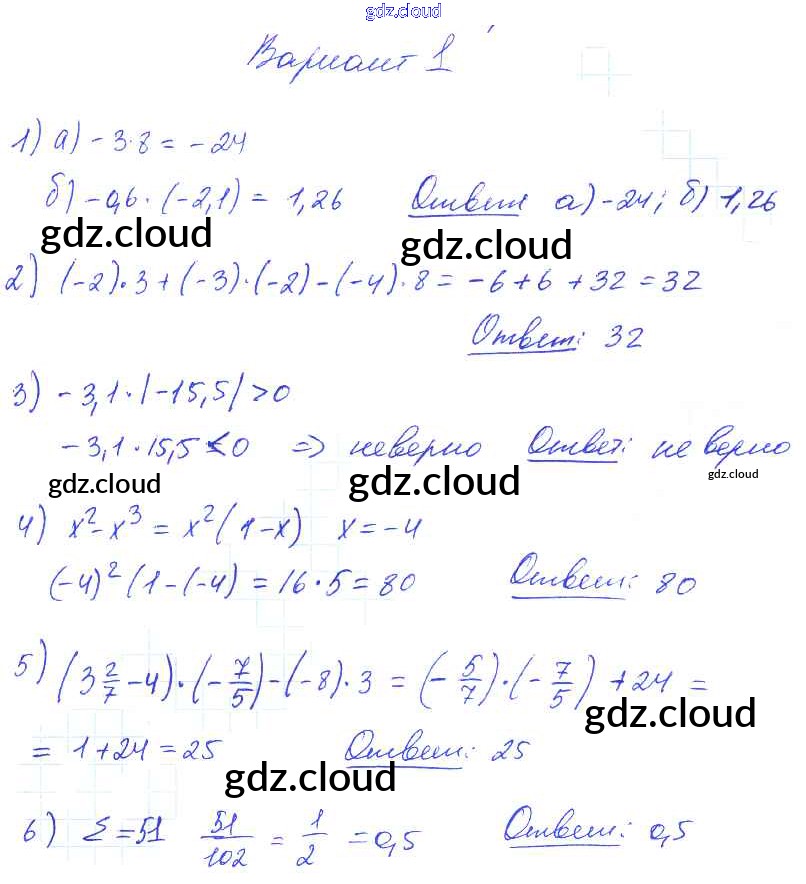 gdz.cloud
Вариант 1
1) а) -3·8 = -24
б) -0,6·(-2,1) = 1,26 Ответ а) -24; б) 1,26
gdz.cloud gdz.cloud
2) (-2)·3+(-3)·(-2)-(-4)·8 = -6+6+32 = 32
Ответ: 32
3) -3,1·|-15,5|>0
-3,1·15,5<0 => неверно Ответ: не верно
gdz.cloud gdz.cloud gdz.cloud
4) x²-x³ = x²(1-x) x=-4
(-4)²(1-(-4) = 16·5 = 80 Ответ: 80
5) (3 2/7 - 4)·(-7/5)-(-8)·3 = (-5/7)·(-7/5)+24 =
gdz.cloud
= 1+24 = 25 Ответ: 25
gdz.cloud
6) Σ=51 51/102 = 1/2 = 0,5 Ответ: 0,5